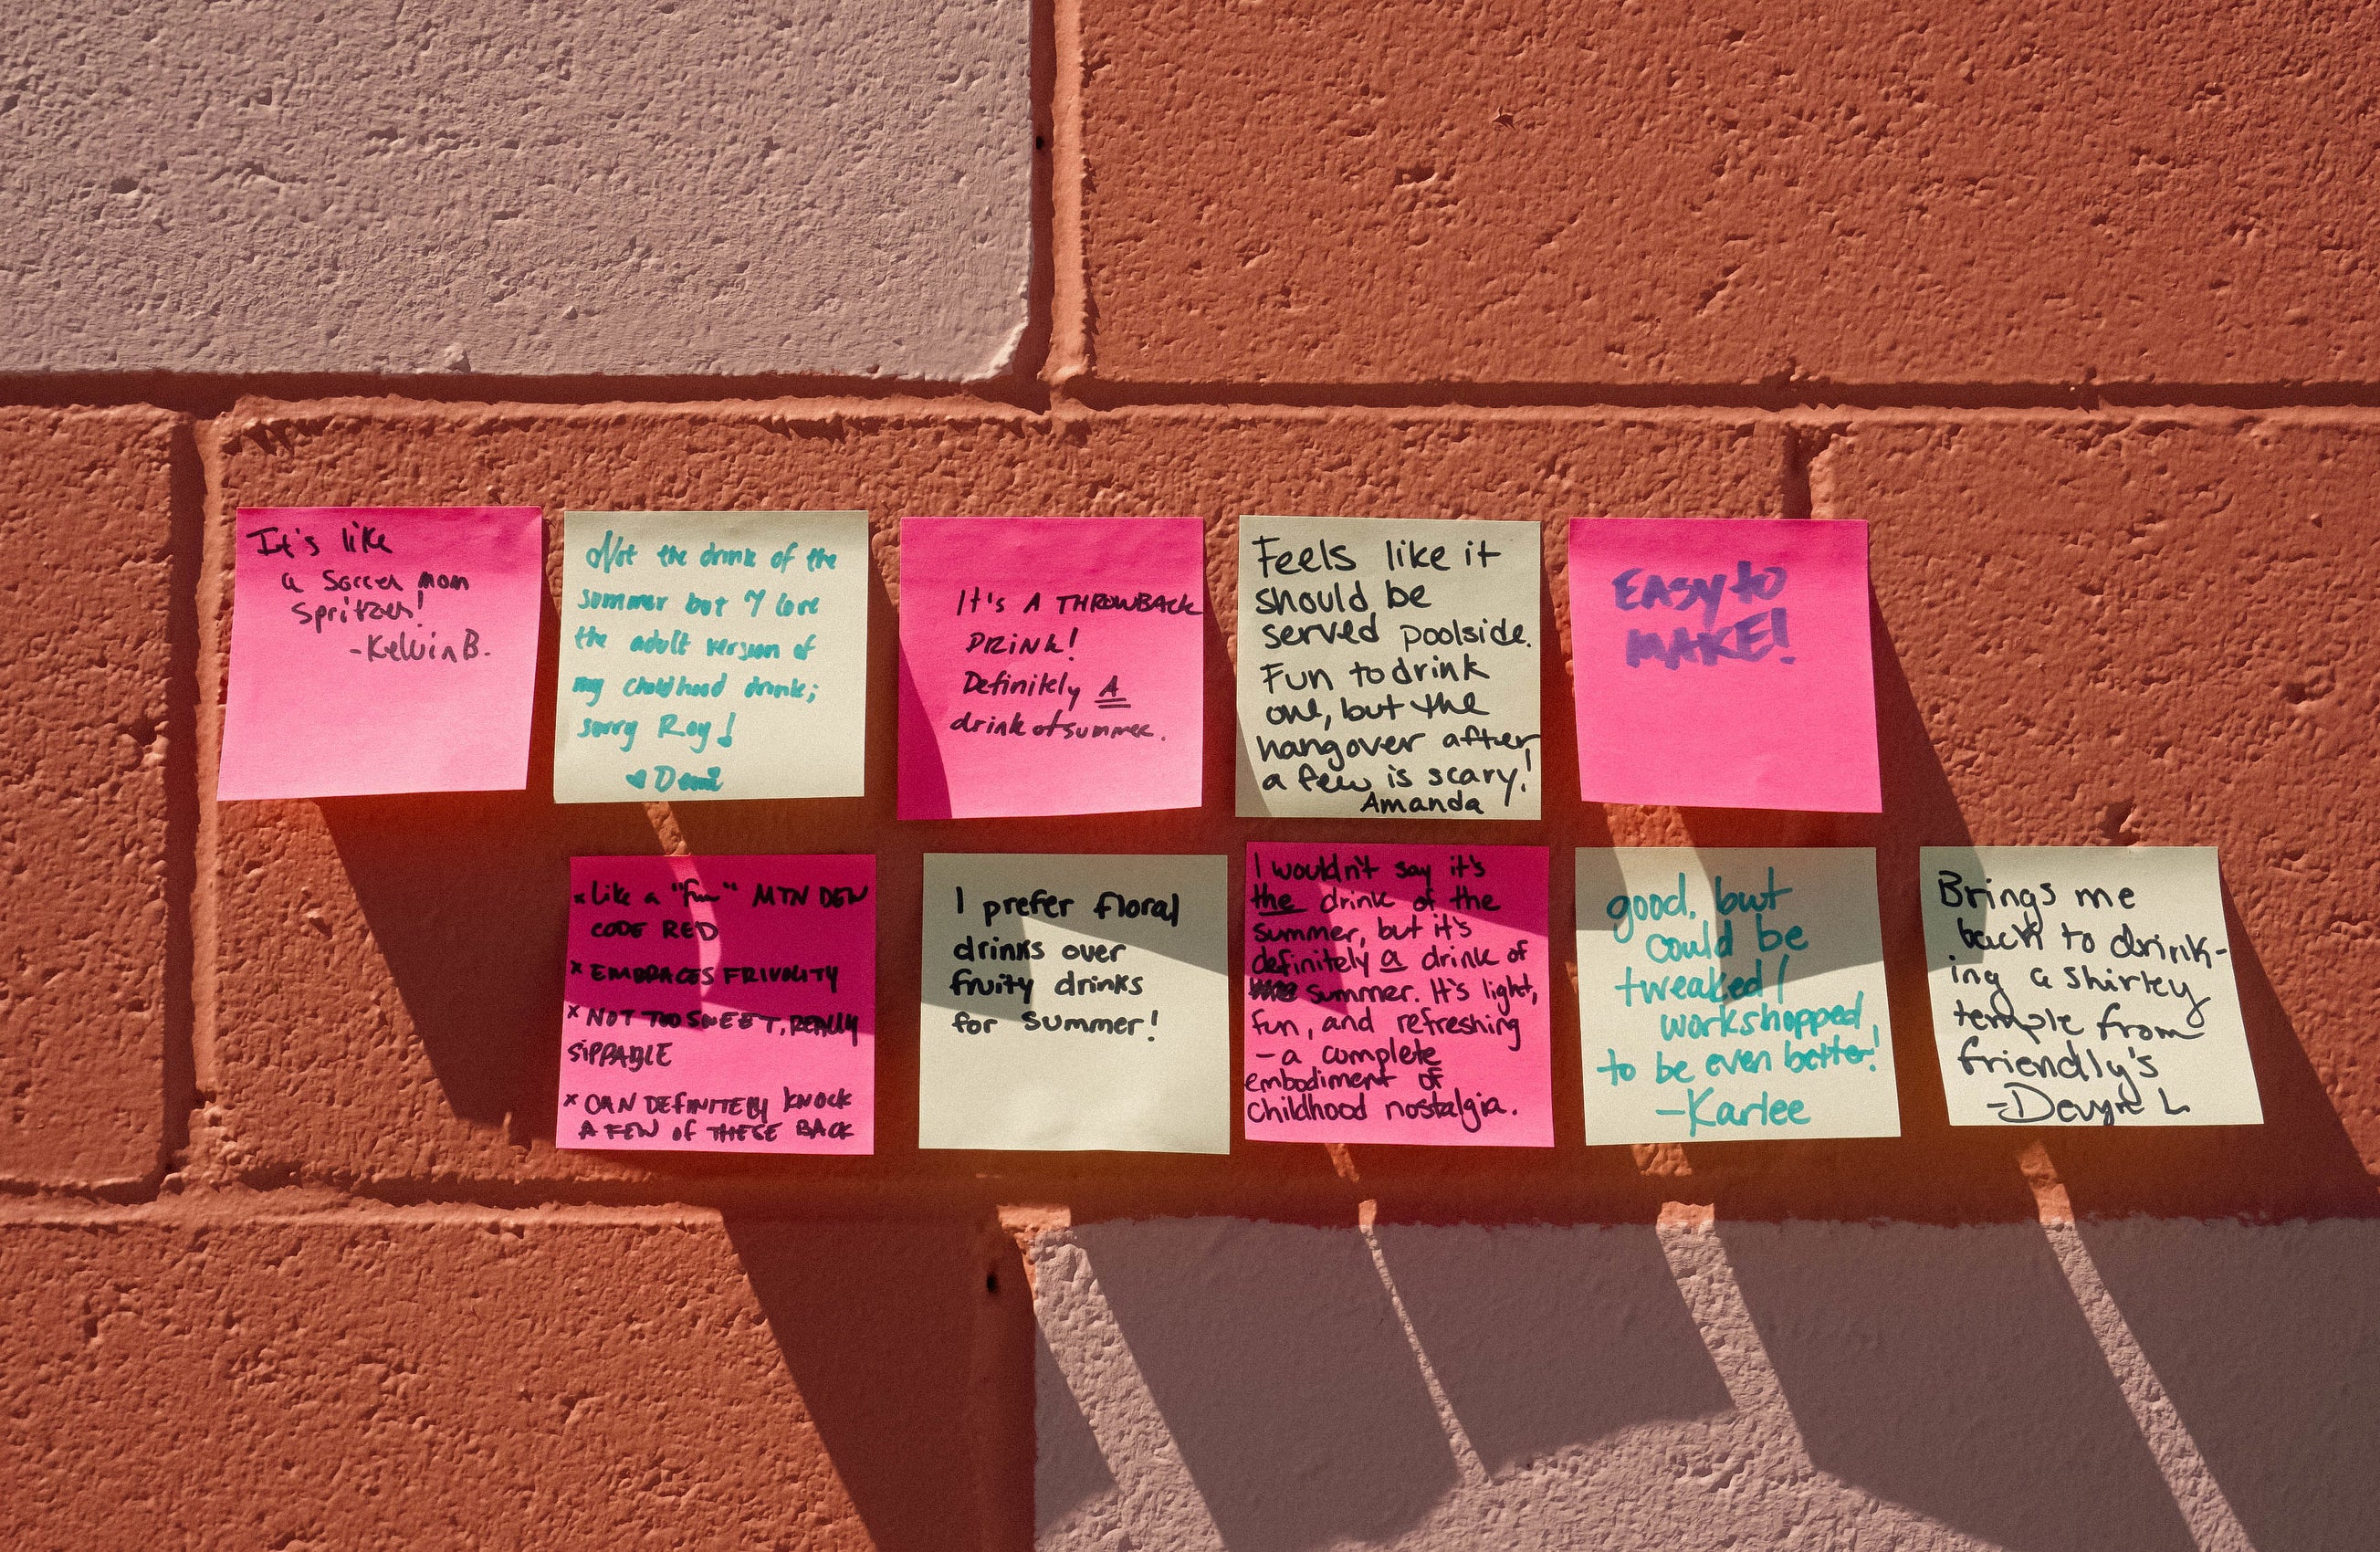 It's like
a Soccer mom
Spritzer!
-Kelvin B.
Not the drink of the
summer but I love
the adult version of
my childhood drink;
sorry Roy!
♥ Demi
It's A THROWBACK
DRINK!
Definitely A
drink of summer.
Feels like it
should be
served poolside.
Fun to drink
one, but the
hangover after
a few is scary!
Amanda
EASY to
MAKE!
x Like a "fun" MTN DEW
CODE RED
x EMBRACES FRIVOLITY
x NOT TOO SWEET, REALLY
SIPPABLE
x CAN DEFINITELY KNOCK
A FEW OF THESE BACK
I prefer floral
drinks over
fruity drinks
for summer!
I wouldn't say it's
the drink of the
summer, but it's
definitely a drink of
summer. It's light,
fun, and refreshing
- a complete
embodiment of
childhood nostalgia.
good, but
could be
tweaked/
workshopped
to be even better!
-Karlee
Brings me
back to drink-
ing a shirley
temple from
friendly's
-Devyn L